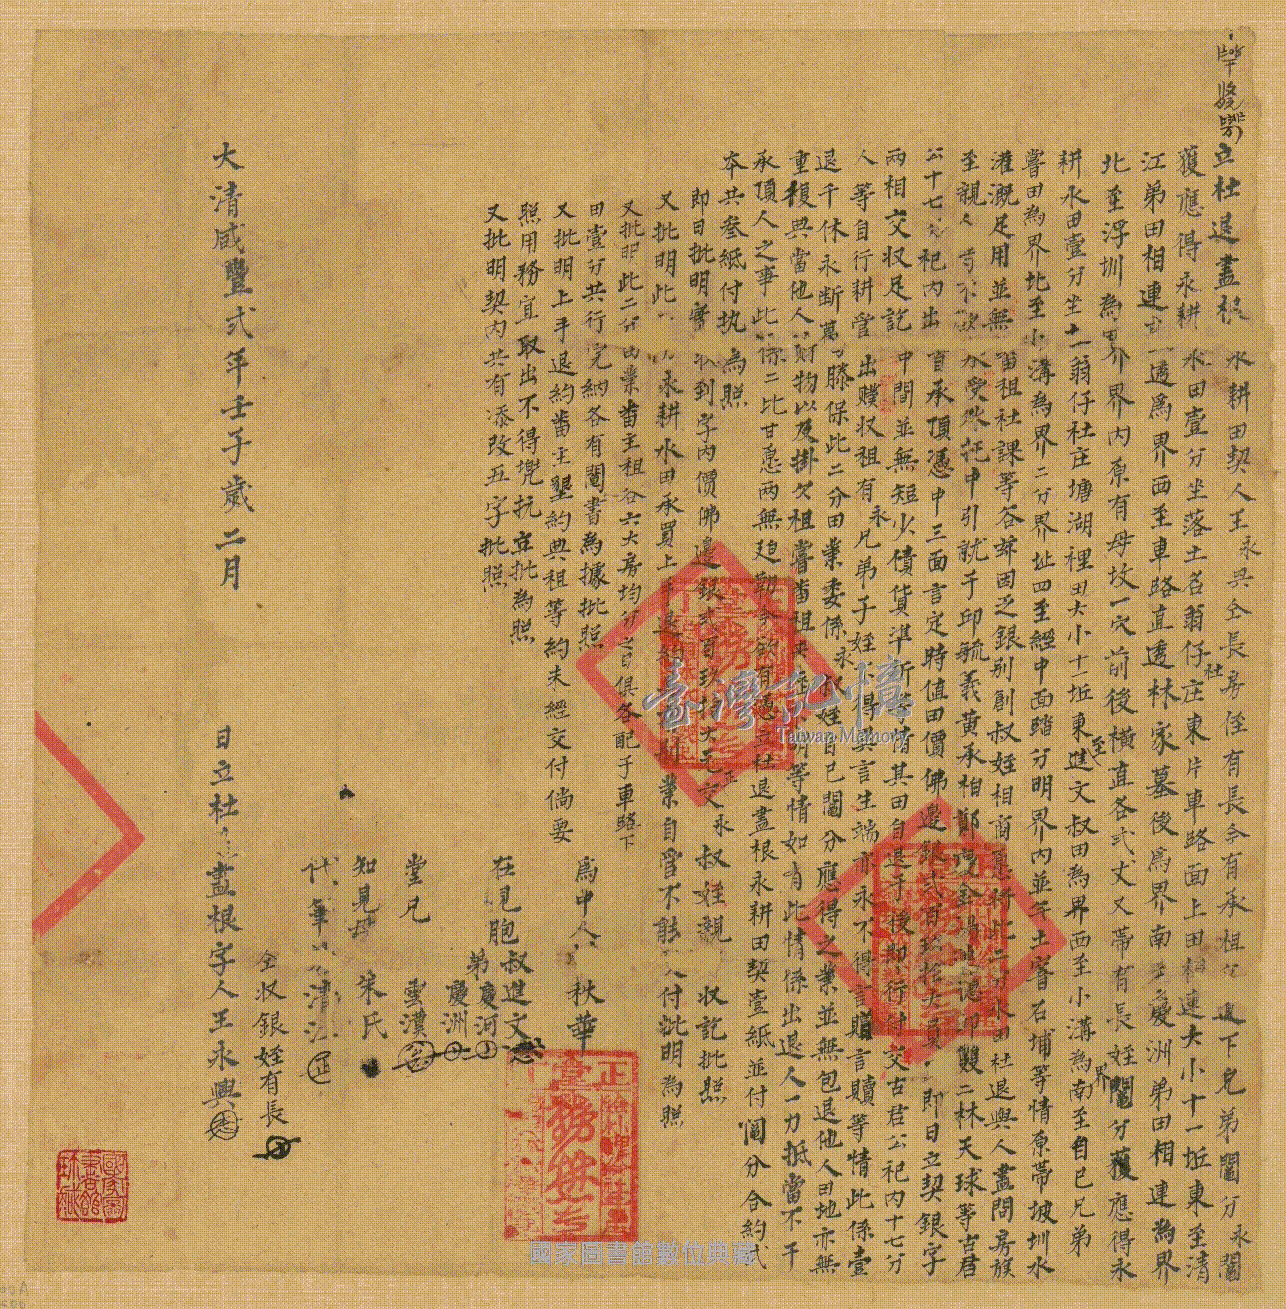 立杜退盡根水耕田契人王永興仝長房侄有長今有承祖父遺下兄弟鬮分永鬮
獲應得永耕水田壹分坐落土名翁仔社庄東片車路面上田相連大小十一坵東至清
江弟田相連透為界西至車路直透林家墓後為界南至慶洲弟田相連為界
北至浮圳為界界內原有母坟一穴前後橫直各弍丈又帶有長姪鬮分獲應得永
耕水田壹分坐土翁仔社庄塘湖裡田大小十一坵東至進文叔田為界西至小溝為界南至自己兄弟
嘗田為界北至小溝為界二分界址四至經中面踏分明界內並年土窨石埔等情原帶坡圳水
灌溉足用並無番租社課等谷緣因乏銀別創叔姪相商愿將此二分水田杜退與人盡問房族
至親人等不欲承受然托中引就于邱毓義黃承相鄭慶金馮思德邱雙二林天球等古君
公十七分祀內出首承頂憑中三面言定時值田價佛邊銀弍百玖拾大員即日立契銀字
兩相交收足訖中間並無短少債貨準折等情其田自退于後即行付交古君公祀內十七分
人等自行耕管出贌收租有永兄弟子姪不得異言生端亦永不得言贈言贖等情此係壹
退千休永斷萬滕保此二分田業委係永叔姪自己鬮分應得之業並無包退他人田地亦無
重複典當他人財物以及掛欠租嘗番租來歷不明等情如有此情係出退人一力抵當不干
承頂人之事此係二比甘愿兩無廹勒今欲有憑立杜退盡根永耕田契壹紙並付鬮分合約弍
夲共叁紙付执為照
即日批明實收到字內價佛邊銀弍百玖拾大元正交永叔姪親收訖批照
又批明此永耕水田承買上手退約業自管不能付批明為照
又批明此二分田業番主租谷六大房均分之日俱各配于車路下
田壹分共行完納各有鬮書為據批照
又批明上手退約番主墾約典租等約未經交付倘要
照用務宜取出不得兜抗立批為照
又批明契內共有添改五字批照
為中人秋華
在見胞叔進文
弟慶河
慶洲
堂兄雲漢
知見母朱氏
代筆清江
仝收銀姪有長
大清咸豐弍年壬子歲二月日立杜退盡根字人王永興
臺灣記憶
Taiwan Memory
國家圖書館數位典藏